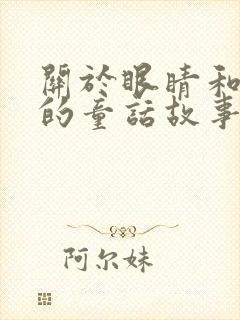 關於眼睛和
的童話故事
阿尔妹